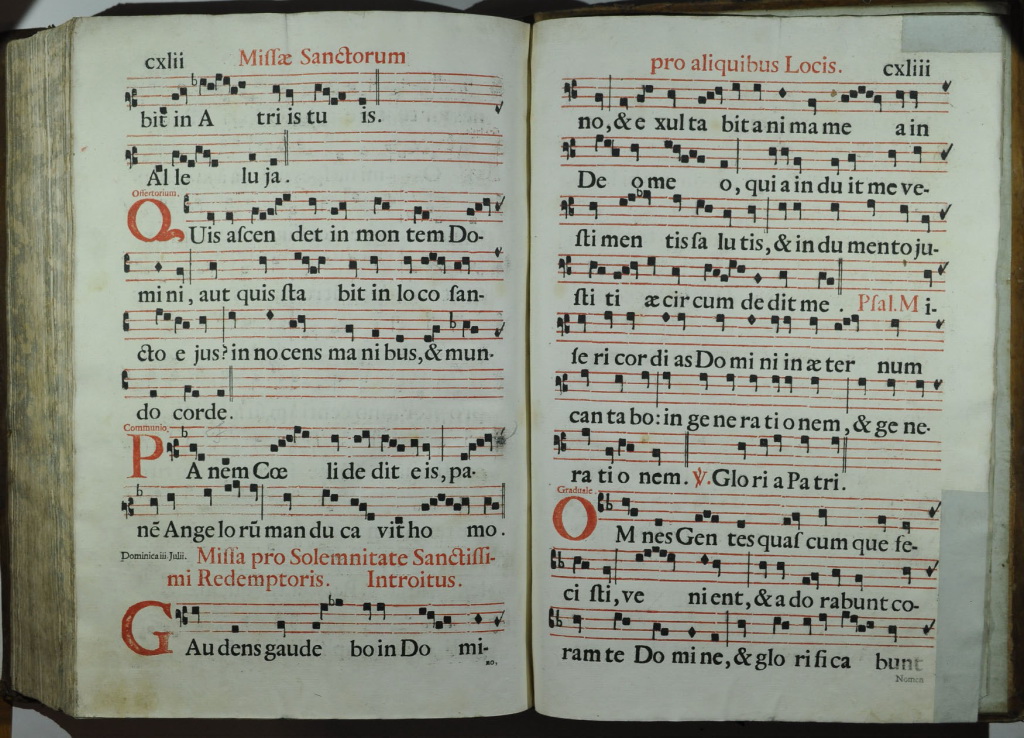 cxlii Missæ Sanctorum
bit in A tri is tu is.
Al le lu ja.
Offertorium.
QUis ascen det in mon tem Do-
mi ni, aut quis sta bit in lo co san-
cto e jus? in no cens ma ni bus, & mun-
do corde.
Communio.
PA nem Cœ li de dit e is, pa-
nē Ange lo rū man du ca vit ho mo.
Dominica iii Julii. Missa pro Solemnitate Sanctissi-
mi Redemptoris. Introitus.
GAu dens gaude bo in Do mi-
no,
pro aliquibus Locis. cxliii
no, & e xul ta bit a ni ma me a in
De o me o, qui a in du it me ve-
sti men tis sa lu tis, & in du mento ju-
sti ti æ cir cum de dit me . Psal. M i-
se ri cor di as Do mi ni in æ ter num
can ta bo: in ge ne ra ti o nem, & ge ne-
ra ti o nem. ℣. Glo ri a Pa tri.
Graduale.
OM nes Gen tes quas cum que fe-
ci sti, ve nient, & a do rabunt co-
ram te Do mi ne, & glo ri fi ca bunt
Nomen